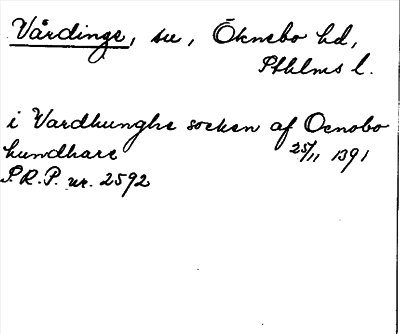 Vårdinge, sn, Öknebo hd,
Sthlms l.
i Vardhunghe socken af Oenobo
hundhare 25/11 1391
P.R.P. nr. 2592